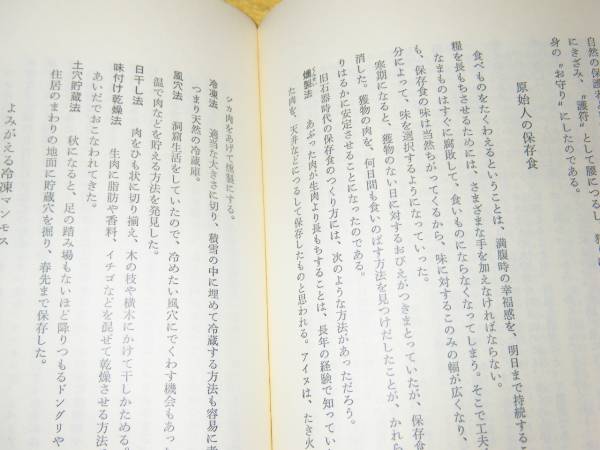 自然の保護
にきざみ、〝護符〟として腰につるし
身の〝お守り〟にしたのである。
原始人の保存食
食べものをたくわえるということは、満腹時の幸福感を、明日まで持続するこ
糧を長もちさせるためには、さまざまな手を加えなければならない。
なまものはすぐに腐敗して、食いものにならなくなってしまう。そこで工夫
も、保存食の味は当然ちがってくるから、味に対するこのみの幅が広くなり、
分によって、味を選択するようになっていった。
寒期になると、獲物のない日に対するおびえがつきまとっていたが、保存食
消した。獲物の肉を、何日間も食いのばす方法を見つけだしたことが、かれら
りはるかに安定させることになったのである。
旧石器時代の保存食のつくり方には、次のような方法があっただろう。
燻製法 あぶった肉が生肉より長もちすることは、長年の経験で知ってい
た肉を、天井などにつるして保存したものと思われる。アイヌは、たき火
シカ肉をあげて燻製にする。
冷凍法 適当な大きさに切り、積雪の中に埋めて冷蔵する方法も容易に
つまり天然の冷蔵庫。
風穴法 洞窟生活をしていたので、冷めたい風穴にでくわす機会もあっ
温で肉などを貯える方法を発見した。
日干し法 肉をひも状に切り揃え、木の枝や横木にかけて干しかためる。
味付け乾燥法 生肉に脂肪や香料、イチゴなどを混ぜて乾燥させる方法
あいだでおこなわれてきた。
土穴貯蔵法 秋になると、足の踏み場もないほど降りつもるドングリや
住居のまわりの地面に貯蔵穴を掘り、春先まで保存した。
よみがえる冷凍マンモス